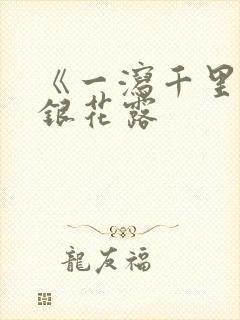 《一瀉千里
銀花露
龍友福